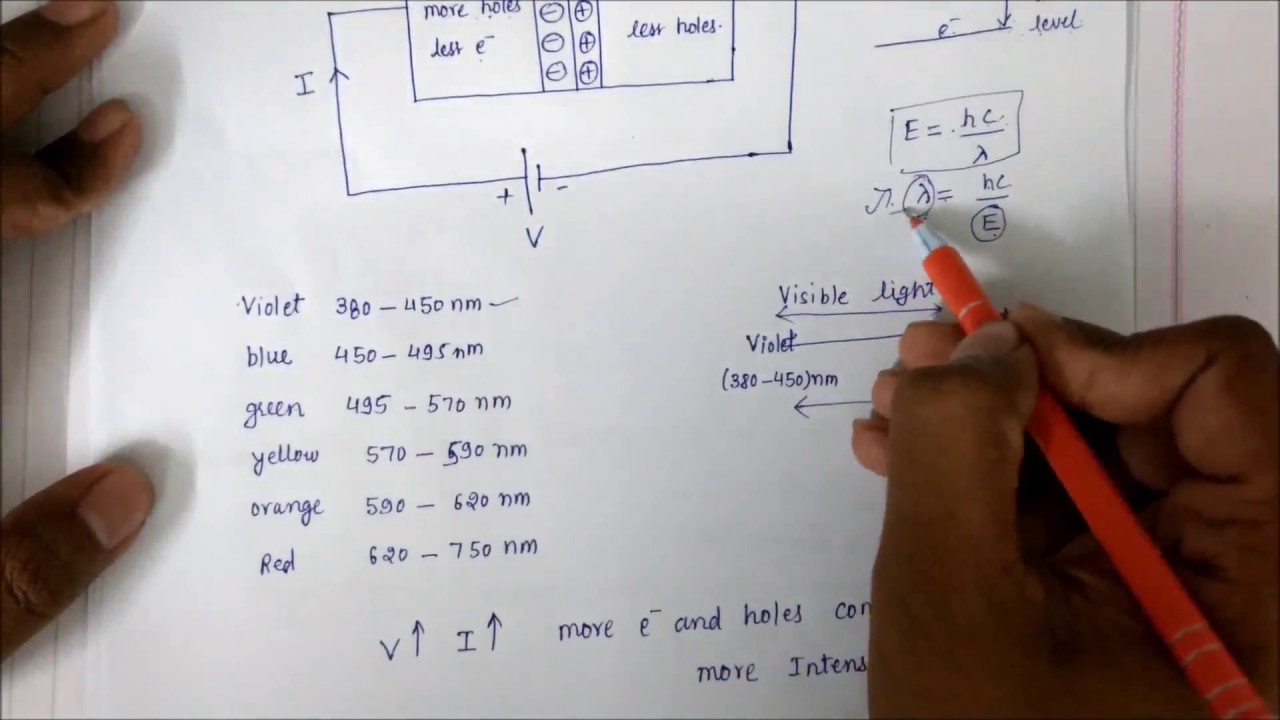 more holes
less e⁻
⊖ ⊕
⊖ ⊕
⊖ ⊕
less holes.
I
+ -
V
e⁻ level
E = hc/λ
λ = hc/E
Violet 380 – 450 nm
blue 450 – 495 nm
green 495 – 570 nm
yellow 570 – 590 nm
orange 590 – 620 nm
Red 620 – 750 nm
Visible light
Violet
(380–450)nm
V↑ I↑ more e⁻ and holes
more